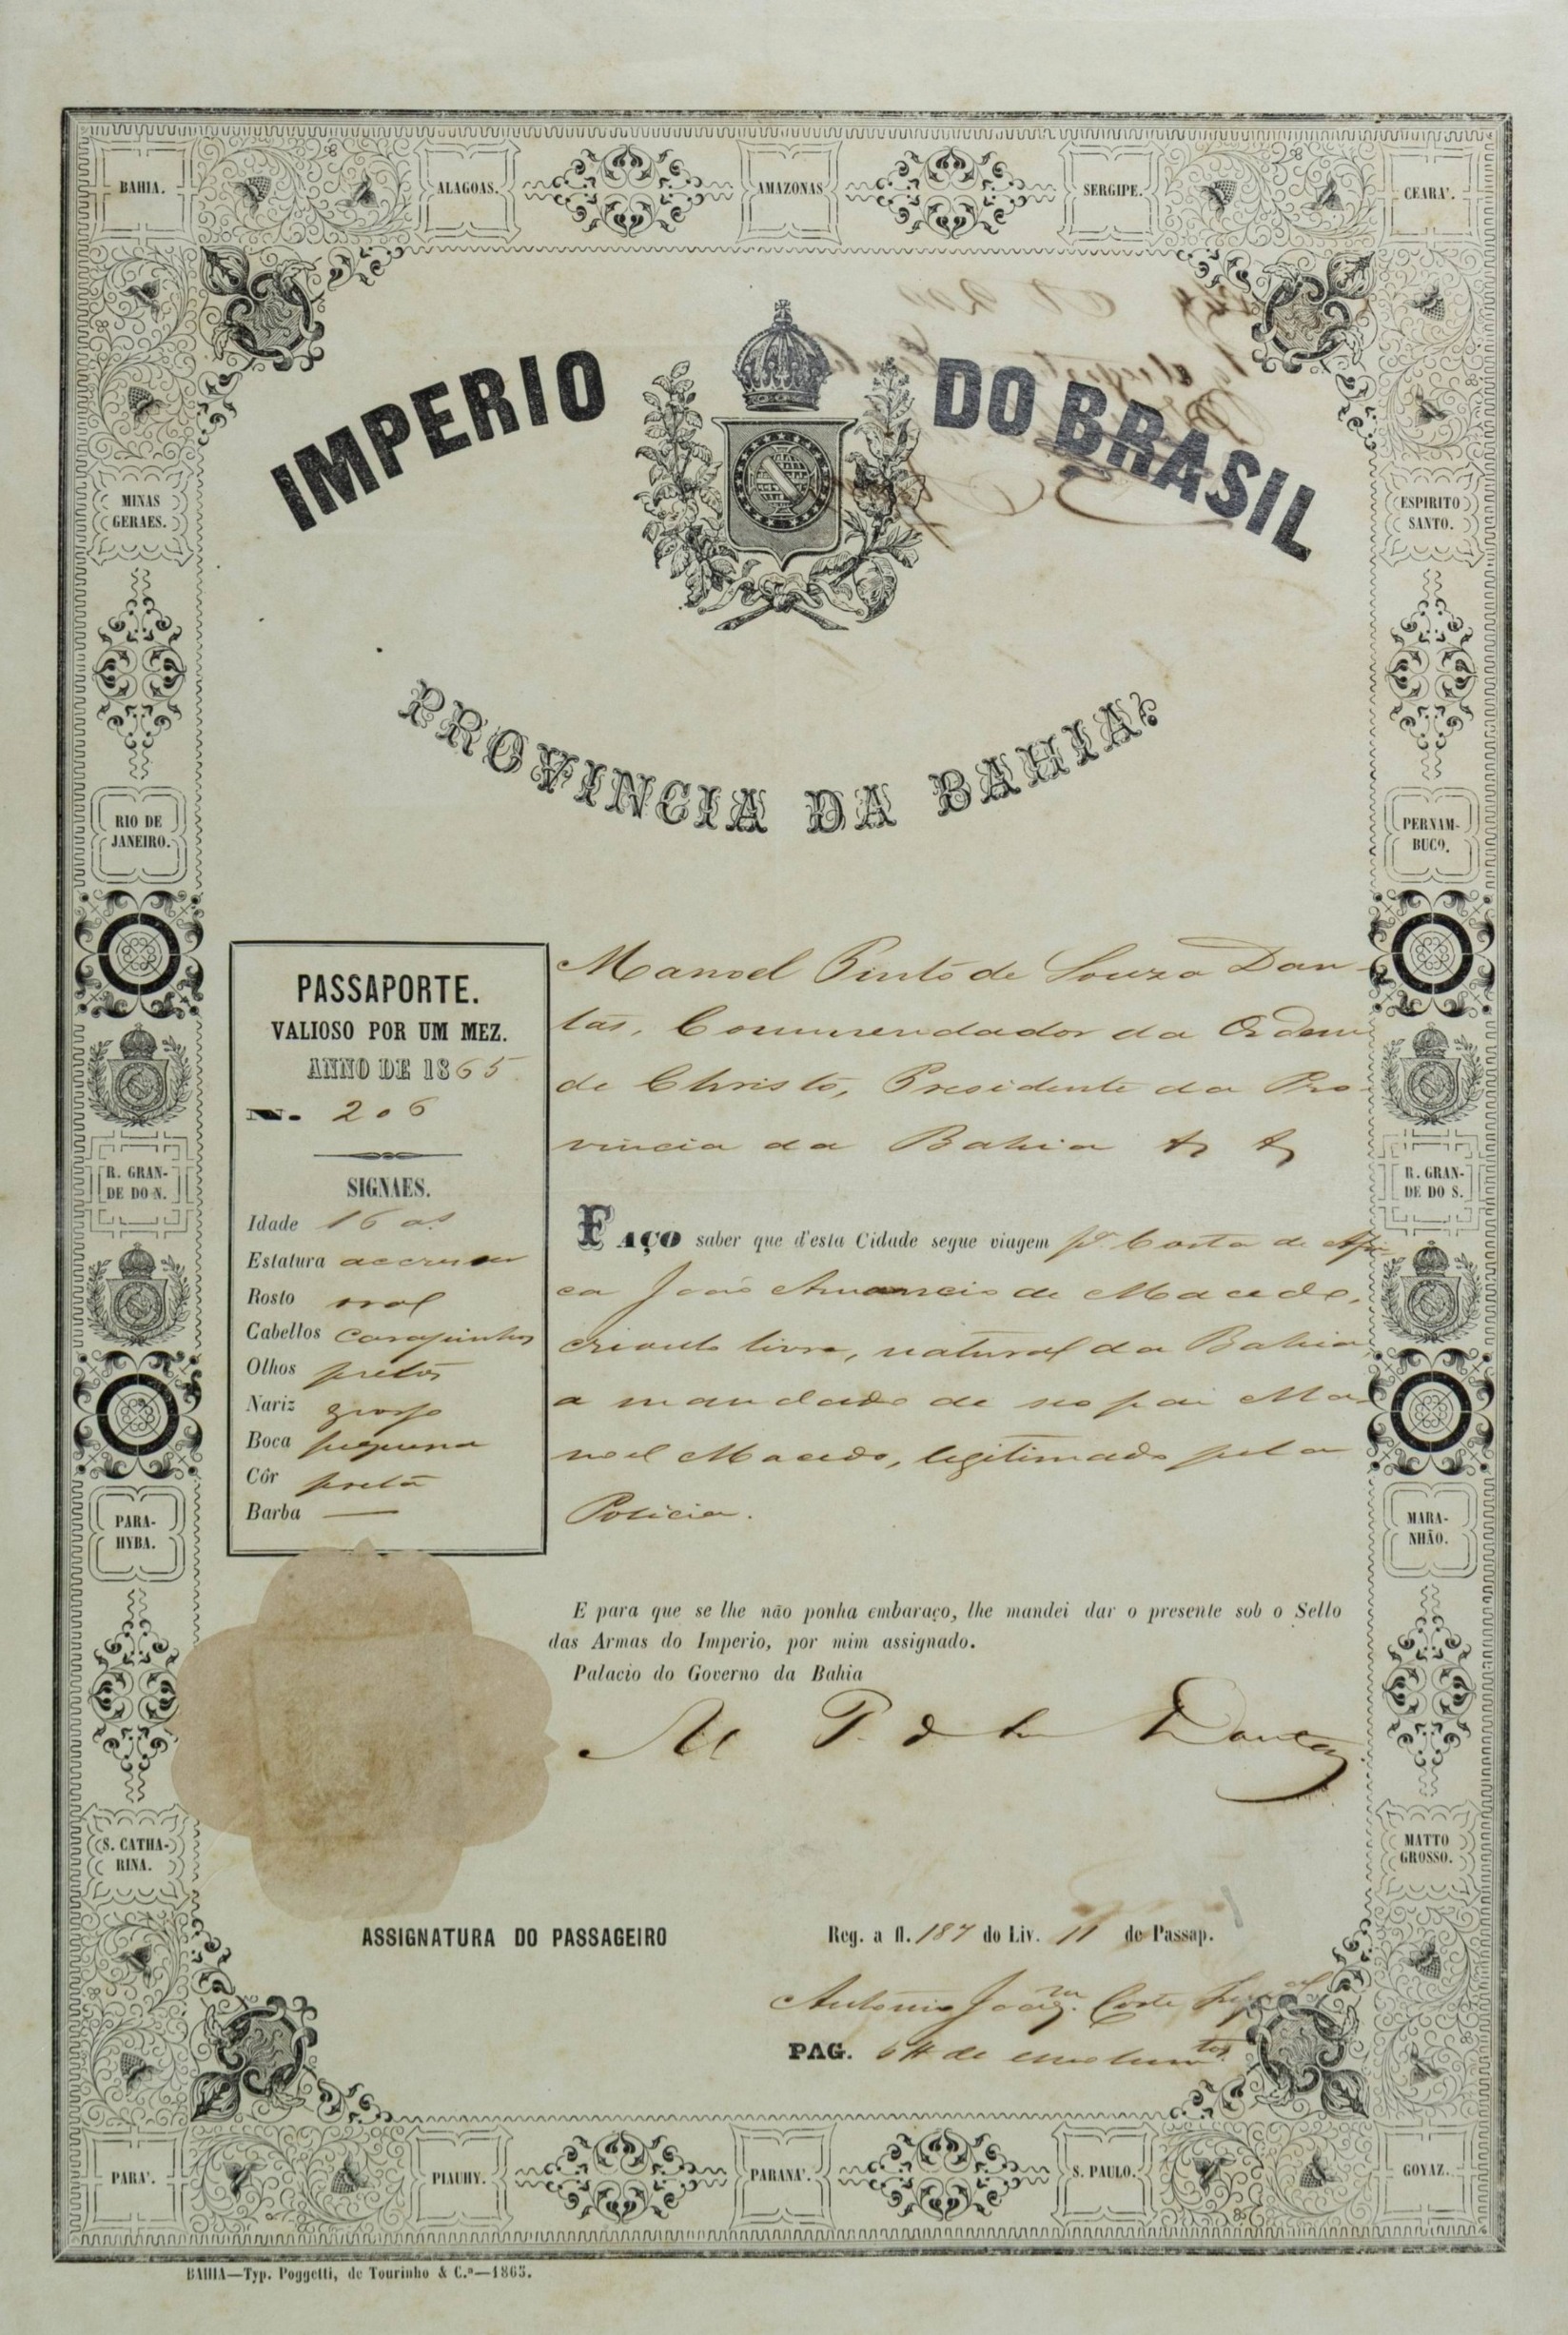 BAHIA.
ALAGOAS.
AMAZONAS
SERGIPE.
CEARA'.
IMPERIO DO BRASIL
MINAS
GERAES.
ESPIRITO
SANTO.
PROVINCIA DA BAHIA
RIO DE
JANEIRO.
PERNAM-
BUCO.
R. GRAN-
DE DO N.
R. GRAN-
DE DO S.
PARA-
HYBA.
MARA-
NHÃO.
S. CATHA-
RINA.
MATTO
GROSSO.
PASSAPORTE.
VALIOSO POR UM MEZ.
ANNO DE 1865
N. 206
SIGNAES.
Idade 16 as
Estatura
Rosto oval
Cabellos carapinhos
Olhos pretos
Nariz grosso
Boca pequena
Côr preta
Barba —
Manoel Pinto de Souza Dan-
tas, Commendador da Ordem
de Christo, Presidente da Pro-
vincia da Bahia &. &.
FAÇO saber que d'esta Cidade segue viagem pa. Costa de Afri-
ca João Amancio de Macedo,
crioulo livre, natural da Bahia,
a mandado de seo pai Ma-
noel Macedo, legitimado pela
Policia.
E para que se lhe não ponha embaraço, lhe mandei dar o presente sob o Sello
das Armas do Imperio, por mim assignado.
Palacio do Governo da Bahia
M P. de Dantas
ASSIGNATURA DO PASSAGEIRO
Reg. a fl. 187 do Liv. 11 de Passap.
Antonio Joaqm. Costa
PAG. 6# de emolumtos.
PARA'.
PIAUHY.
PARANA'.
S. PAULO.
GOYAZ.
BAHIA—Typ. Poggetti, de Tourinho & C.ª—1865.